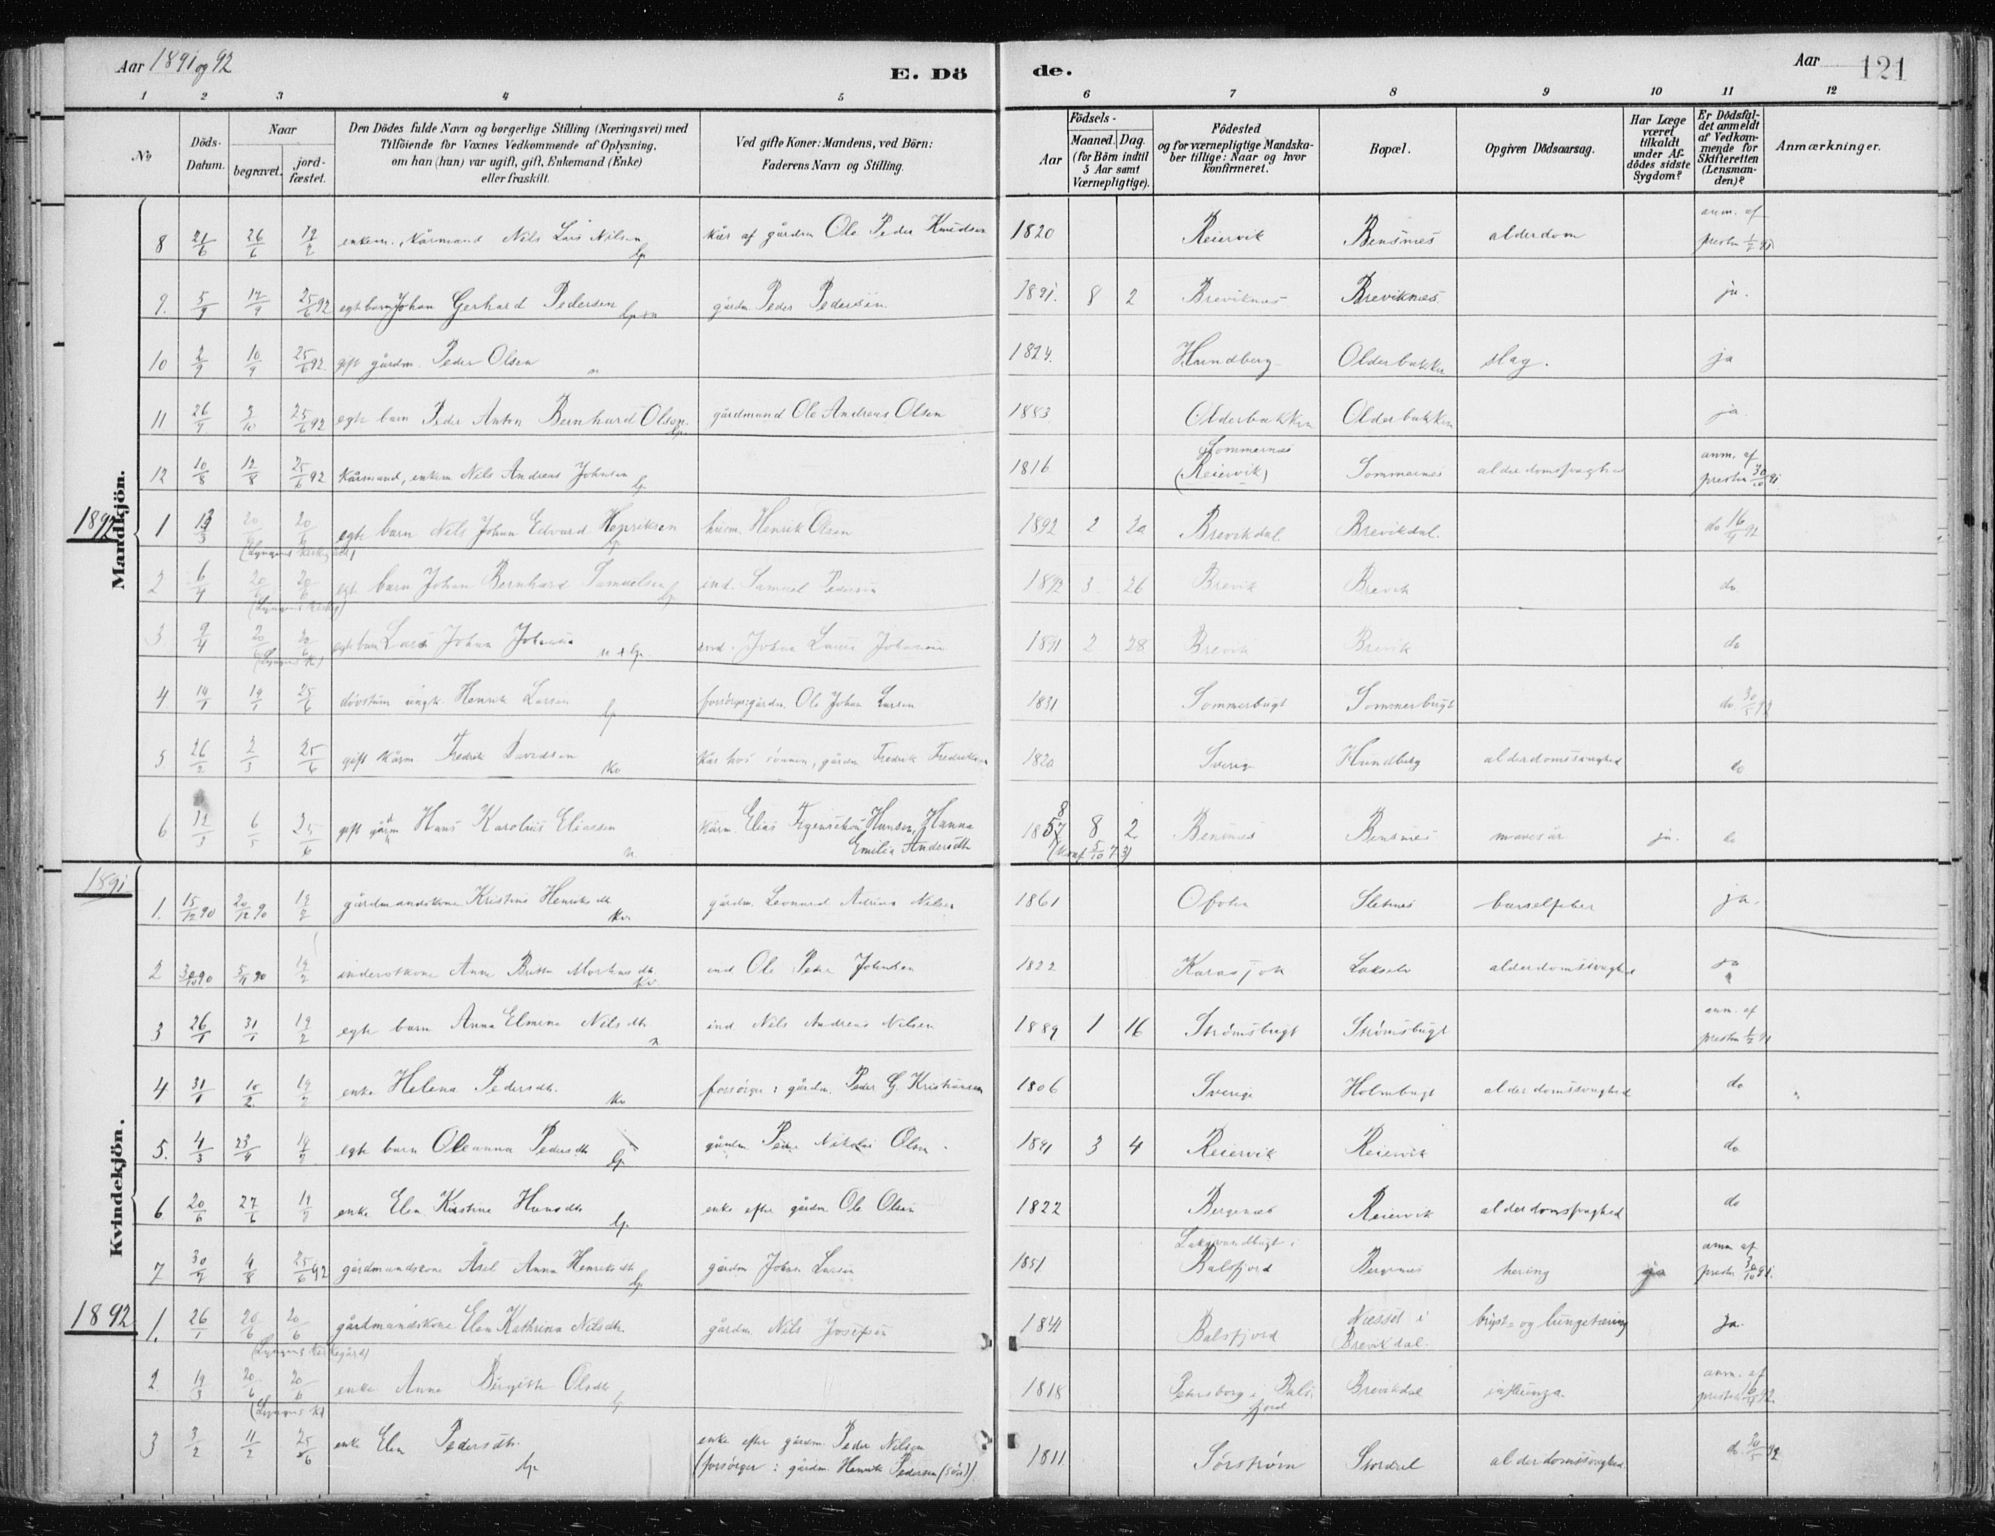 Aar 1891 og 92
E. Dö
de.
Aar
121
1 2 3 4 5 6 7 8 9 10 11 12
No
Döds-Datum.
Naar
begravet.
jord-fæstet.
Den Dödes fulde Navn og borgerlige Stilling (Næringsvei) med
Tilföiende for Voxnes Vedkommende af Oplysning,
om han (hun) var ugift, gift, Enkemand (Enke)
eller fraskilt.
Ved gifte Koner: Mandens, ved Börn:
Faderens Navn og Stilling.
Födsels-
Aar
Maaned. Dag.
(for Börn indtil
5 Aar samt
Værnepligtige).
Födested
og for værnepligtige Mandska-
ber tillige: Naar og hvor
konfirmeret.
Bopæl.
Opgiven Dödsaarsag.
Har Læge
været
tilkaldt
under Af-
dödes sidste
Sygdom?
Er Dödsfal-
det anmeldt
af Vedkom-
mende for
Skifteretten
(Lensman-
den)?
Anmærkninger.
Mandkjön.
8 21/6 26/6 19/2 enkem., kårmand Nils Lars Nilsen lp kår af gården Ole Peder Knudsen 1820 Reiervik Bensnes alderdom anm. af presten 1/2 91
9. 5/9 17/9 25/6 92 egte barn Johan Gerhard Pedersen gårdm. Peder Pedersen 1891. 8 2 Breviknes Breviknes ja.
10 2/9 10/9 25/6 92. gift gårdm. Peder Olsen n 1824. Hundberg Olderbakken slag. ja
11 26/9 3/10 25/6 92 egte barn Peder Anton Bernhard Olsen lp. gårdmand Ole Andreas Olsen 1883 Olderbakken Olderbakken ja.
12 10/8 12/8 25/6 92 kårmand, enkem Nils Andreas Johnsen lp. 1816 Sommernes (Reiervik) Sommernes alderdomssvaghed anm. af presten 30/10 91
1892
1 13/3 20/6 20/6 egte barn Nils Johan Edvard Henriksen lp husm. Henrik Olsen 1892 2 20 Brevikdal Brevikdal. do 16/4 92
2 6/4 20/6 20/6 egte barn Johan Bernhard Samuelsen lp ind. Samuel Pedersen 1892 3 26 Brevik Brevik do
3 9/4 20/6 20/6 egte barn Lars Johan Johansen n + lp. ind. Johan Johansen 1891 2 28 Brevik Brevik do
4 14/1 19/1 25/6 døvstum ungk. Henrik Larsen lp forsörger: gårdm. Ole Johan Larsen 1831 Sommerbugt Sommerbugt do 30/5 92
5 26/2 2/3 25/6 gift kårm Fredrik Davidsen kv kår hos sönnen, gårdm Fredrik Fredriksen 1820 Sverige Hundberg alderdomssvaghed do
6 12/3 6/5 25/6 gift gårdm Hans Karolius Eliassen n Kårm. Elias Hansen, Hanna Emilia Andersdtr 1858 8 2 (konf 5/10 73) Bensnes Bensnes mavesår ja. do
Kvindekjön.
1891
1. 15/12 90 20/12 90 19/2 gårdmandskone Kristine Henriksdtr kv. gårdm. Leonard Adrian Nilsen 1861 Ofoten Sletnes barselfeber ja.
2 30/10 90 5/11 90 19/2 inderstkone Anne Britta Mortensdtr kv. ind Ole Peder Johnsen 1822 Karasjok Lakselv alderdomssvaghed ja
3 26/1 31/1 19/2 egte barn Anna Elmine Nilsdtr n ind Nils Andreas Nilsen 1889 1 16 Strømsbugt Strømsbugt anm. af presten 1/2 91
4 31/1 10/2 19/2 enke Helena Pedersdtr. kv forsörger: gårdm. Peder G. Kristiansen 1806 Sverige Holmbugt alderdomssvaghed do
5. 4/3 23/4 19/2 egte barn Oleanna Pedersdtr lp. gårdm. Peder Nikolai Olsen 1891 3 4 Reiervik Reiervik do
6 20/6 27/6 19/2 enke Elen Kirstine Hansdtr lp. enke efter gårdm Ole Olsen 1822 Bergenæs Reiervik alderdomssvaghed do
7 30/7 4/8 25/6 92 gårdmandskone Åsel Anna Henriksdtr lp gårdm Johan Larsen 1851 Laksvandbugt i Balsfjord Bergenes tæring ja anm. af presten 30/10 91.
1892
1. 26/1 20/6 20/6 gårdmandskone Elen Kathrina Nilsdtr. gårdm. Nils Josefsen 1841 Balsfjord Næsset i Brevikdal bryst- og lungetæring ja.
(Lyngens kirkegård)
2. 19/3 20/6 20/6 enke Anne Birgitte Olsdtr lp 1818 Petersborg i Balsfjord Brevikdal influenza anm. af presten 16/4 92.
(Lyngens k)
3 3/2 11/2 25/6 enke Elen Pedersdtr. lp. enke efter gårdm. Peder Nilsen 1811 Sörstrøm Stordal alderdomssvaghed do 30/5 92
(forsörger: gårdm. Henrik Pedersen (sön))